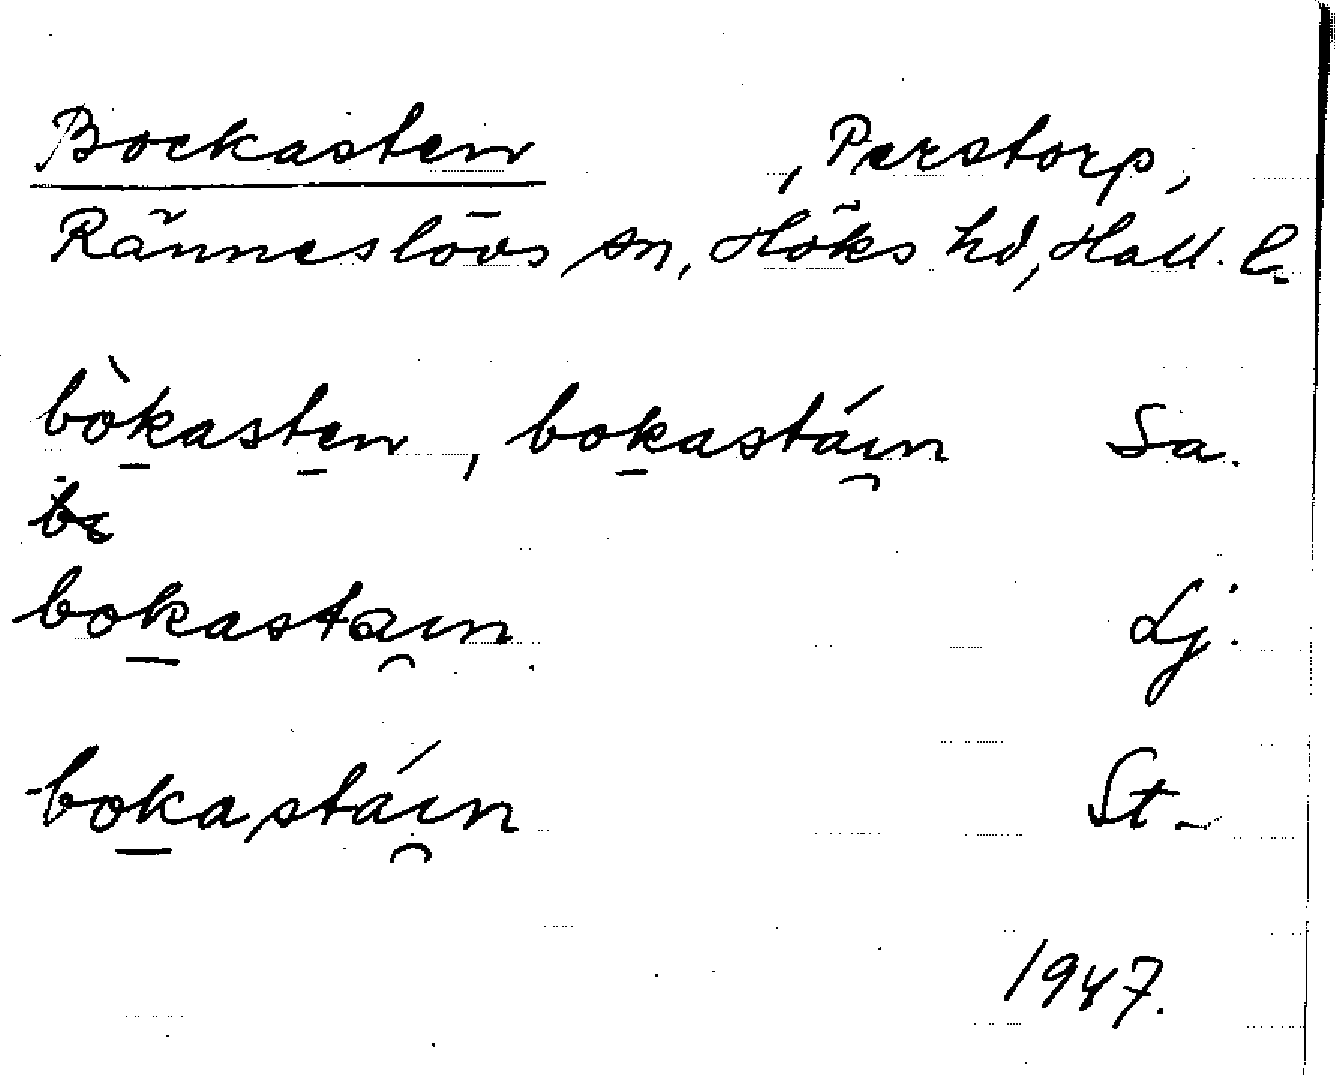 Bockasten , Perstorp,
Ränneslövs sn, Höks hd, Hall. l.
bòkasten, bokastáın Sa.
bokastaın Lj.
bokastáın St.
1947.